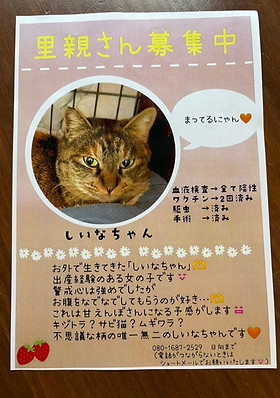 里親さん募集中
まってるにゃん🧡
血液検査→全て陰性
ワクチン→2回済み
駆虫　→済み
手術　→済み
しいなちゃん
お外で生きてきた「しいなちゃん」
出産経験のある女の子です
警戒心は強めでしたが
お腹をなでなでしてもらうのが好き…
これは甘えんぼさんになる予感がします
キジトラ？サビ猫？ムギワラ？
不思議な柄の唯一無二のしいなちゃんです🧡
080-1687-2529　日向まで
(電話がつながらないときは
ショートメールでお願いいたします)